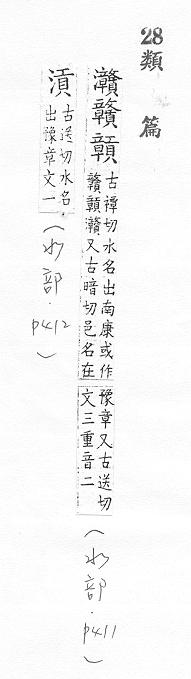 28類 篇
灨贛贑古禫切水名出南康或作
贛贑灨又古暗切邑名在
豫章又古送切
文三重音二
(水部.p411)
湏古送切水名
出豫章文一
(水部.p412)